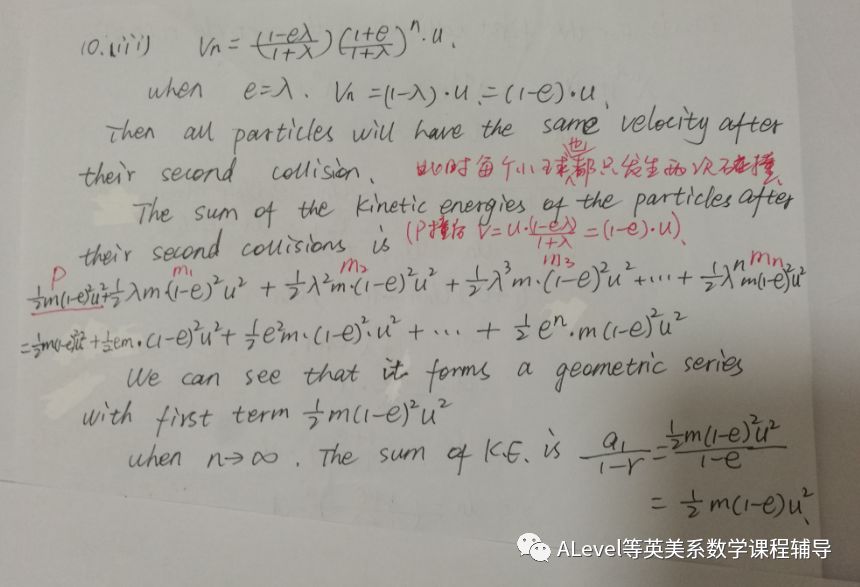 10.(iii) Vn = (1-eλ/1+λ)(1+e/1+λ)^n·u.
when e=λ. Vn = (1-λ)·u. = (1-e)·u.
Then all particles will have the same velocity after
their second collision. 此时每个小球都只发生两次碰撞.
也
The sum of the kinetic energies of the particles after
their second collisions is (P撞后 V=u·(1-eλ)/1+λ = (1-e)·u).
P m₁ m₂ m₃ mn
½m(1-e)²u²+½λm·(1-e)²u² + ½λ²m·(1-e)²u² + ½λ³m·(1-e)²u²+···+ ½λⁿm(1-e)²u²
=½m(1-e)²u² + ½em·(1-e)²u² + ½e²m·(1-e)²·u² + ··· + ½eⁿ·m(1-e)²u²
We can see that it forms a geometric series
with first term ½m(1-e)²u²
when n→∞. The sum of K.E. is a₁/1-r = ½m(1-e)²u²/1-e
= ½m(1-e)u².
ALevel等英美系数学课程辅导